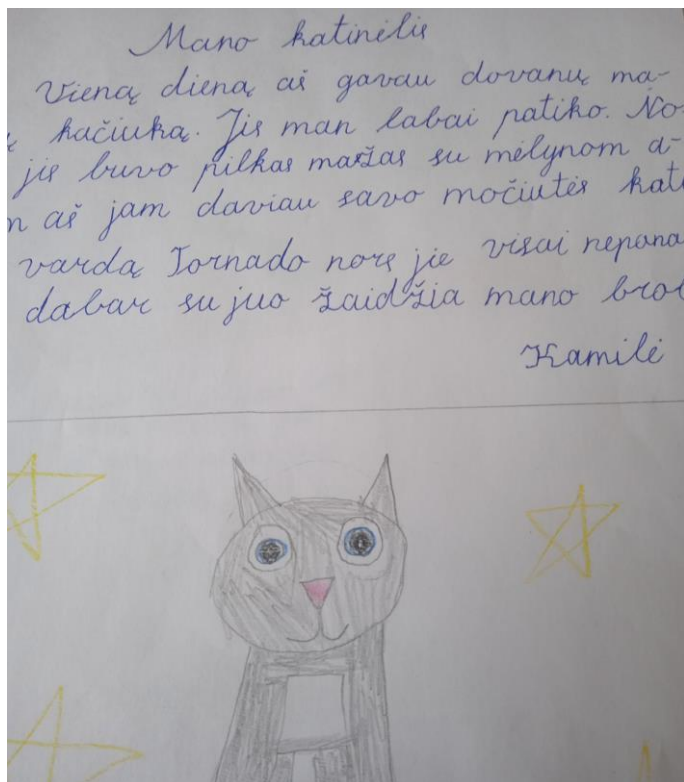 Mano katinėlis
Vieną dieną aš gavau dovanų ma-
ą kačiuką. Jis man labai patiko. No-
jis buvo pilkas mažas su mėlynom a-
m aš jam daviau savo močiutės kati
vardą Tornado nors jie visai nepana
dabar su juo žaidžia mano brol
Kamilė